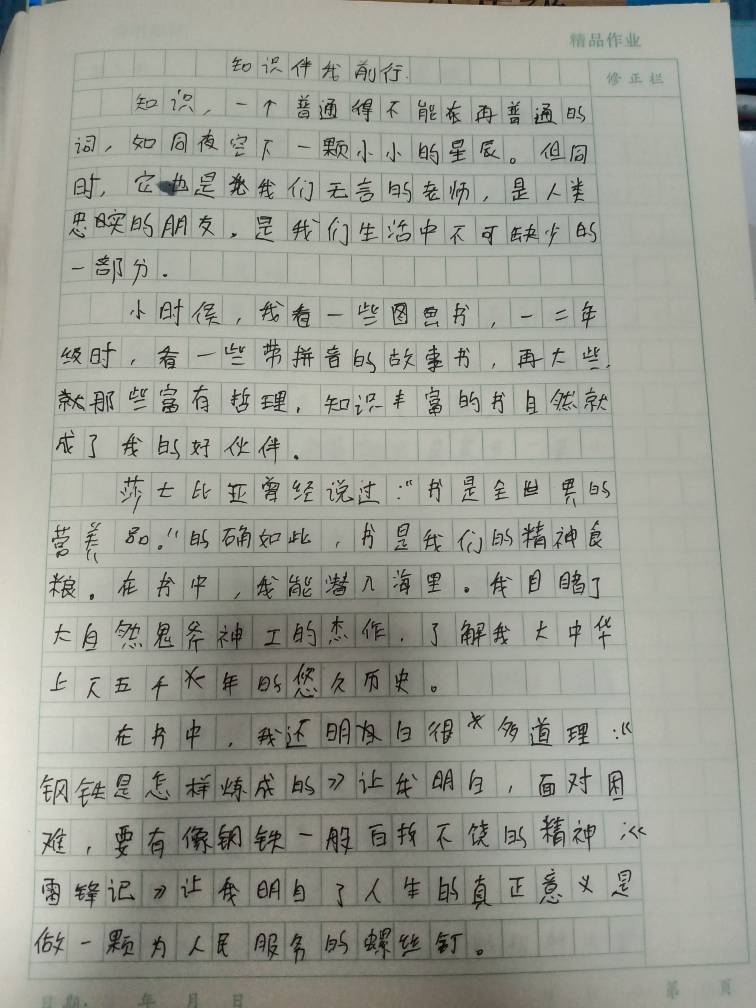 精品作业
修正栏
知识伴我前行
知识，一个普通得不能在再普通的
词，如同夜空下一颗小小的星辰。但同
时，它也是我们无言的老师，是人类
忠实的朋友。是我们生活中不可缺少的
一部分。
小时候，我看一些图画书，一二年
级时，看一些带拼音的故事书，再大些，
就那些富有哲理，知识丰富的书自然就
成了我的好伙伴。
莎士比亚曾经说过："书是全世界的
营养品。"的确如此，书是我们的精神食
粮。在书中，我能潜入海里。我目睹了
大自然鬼斧神工的杰作，了解我大中华
上下五千年的悠久历史。
在书中，我还明白很多道理：《
钢铁是怎样炼成的》让我明白，面对困
难，要有像钢铁一般百折不饶的精神；《
雷锋记》让我明白了人生的真正意义是
做一颗为人民服务的螺丝钉。
日期： 年 月 日
第 页